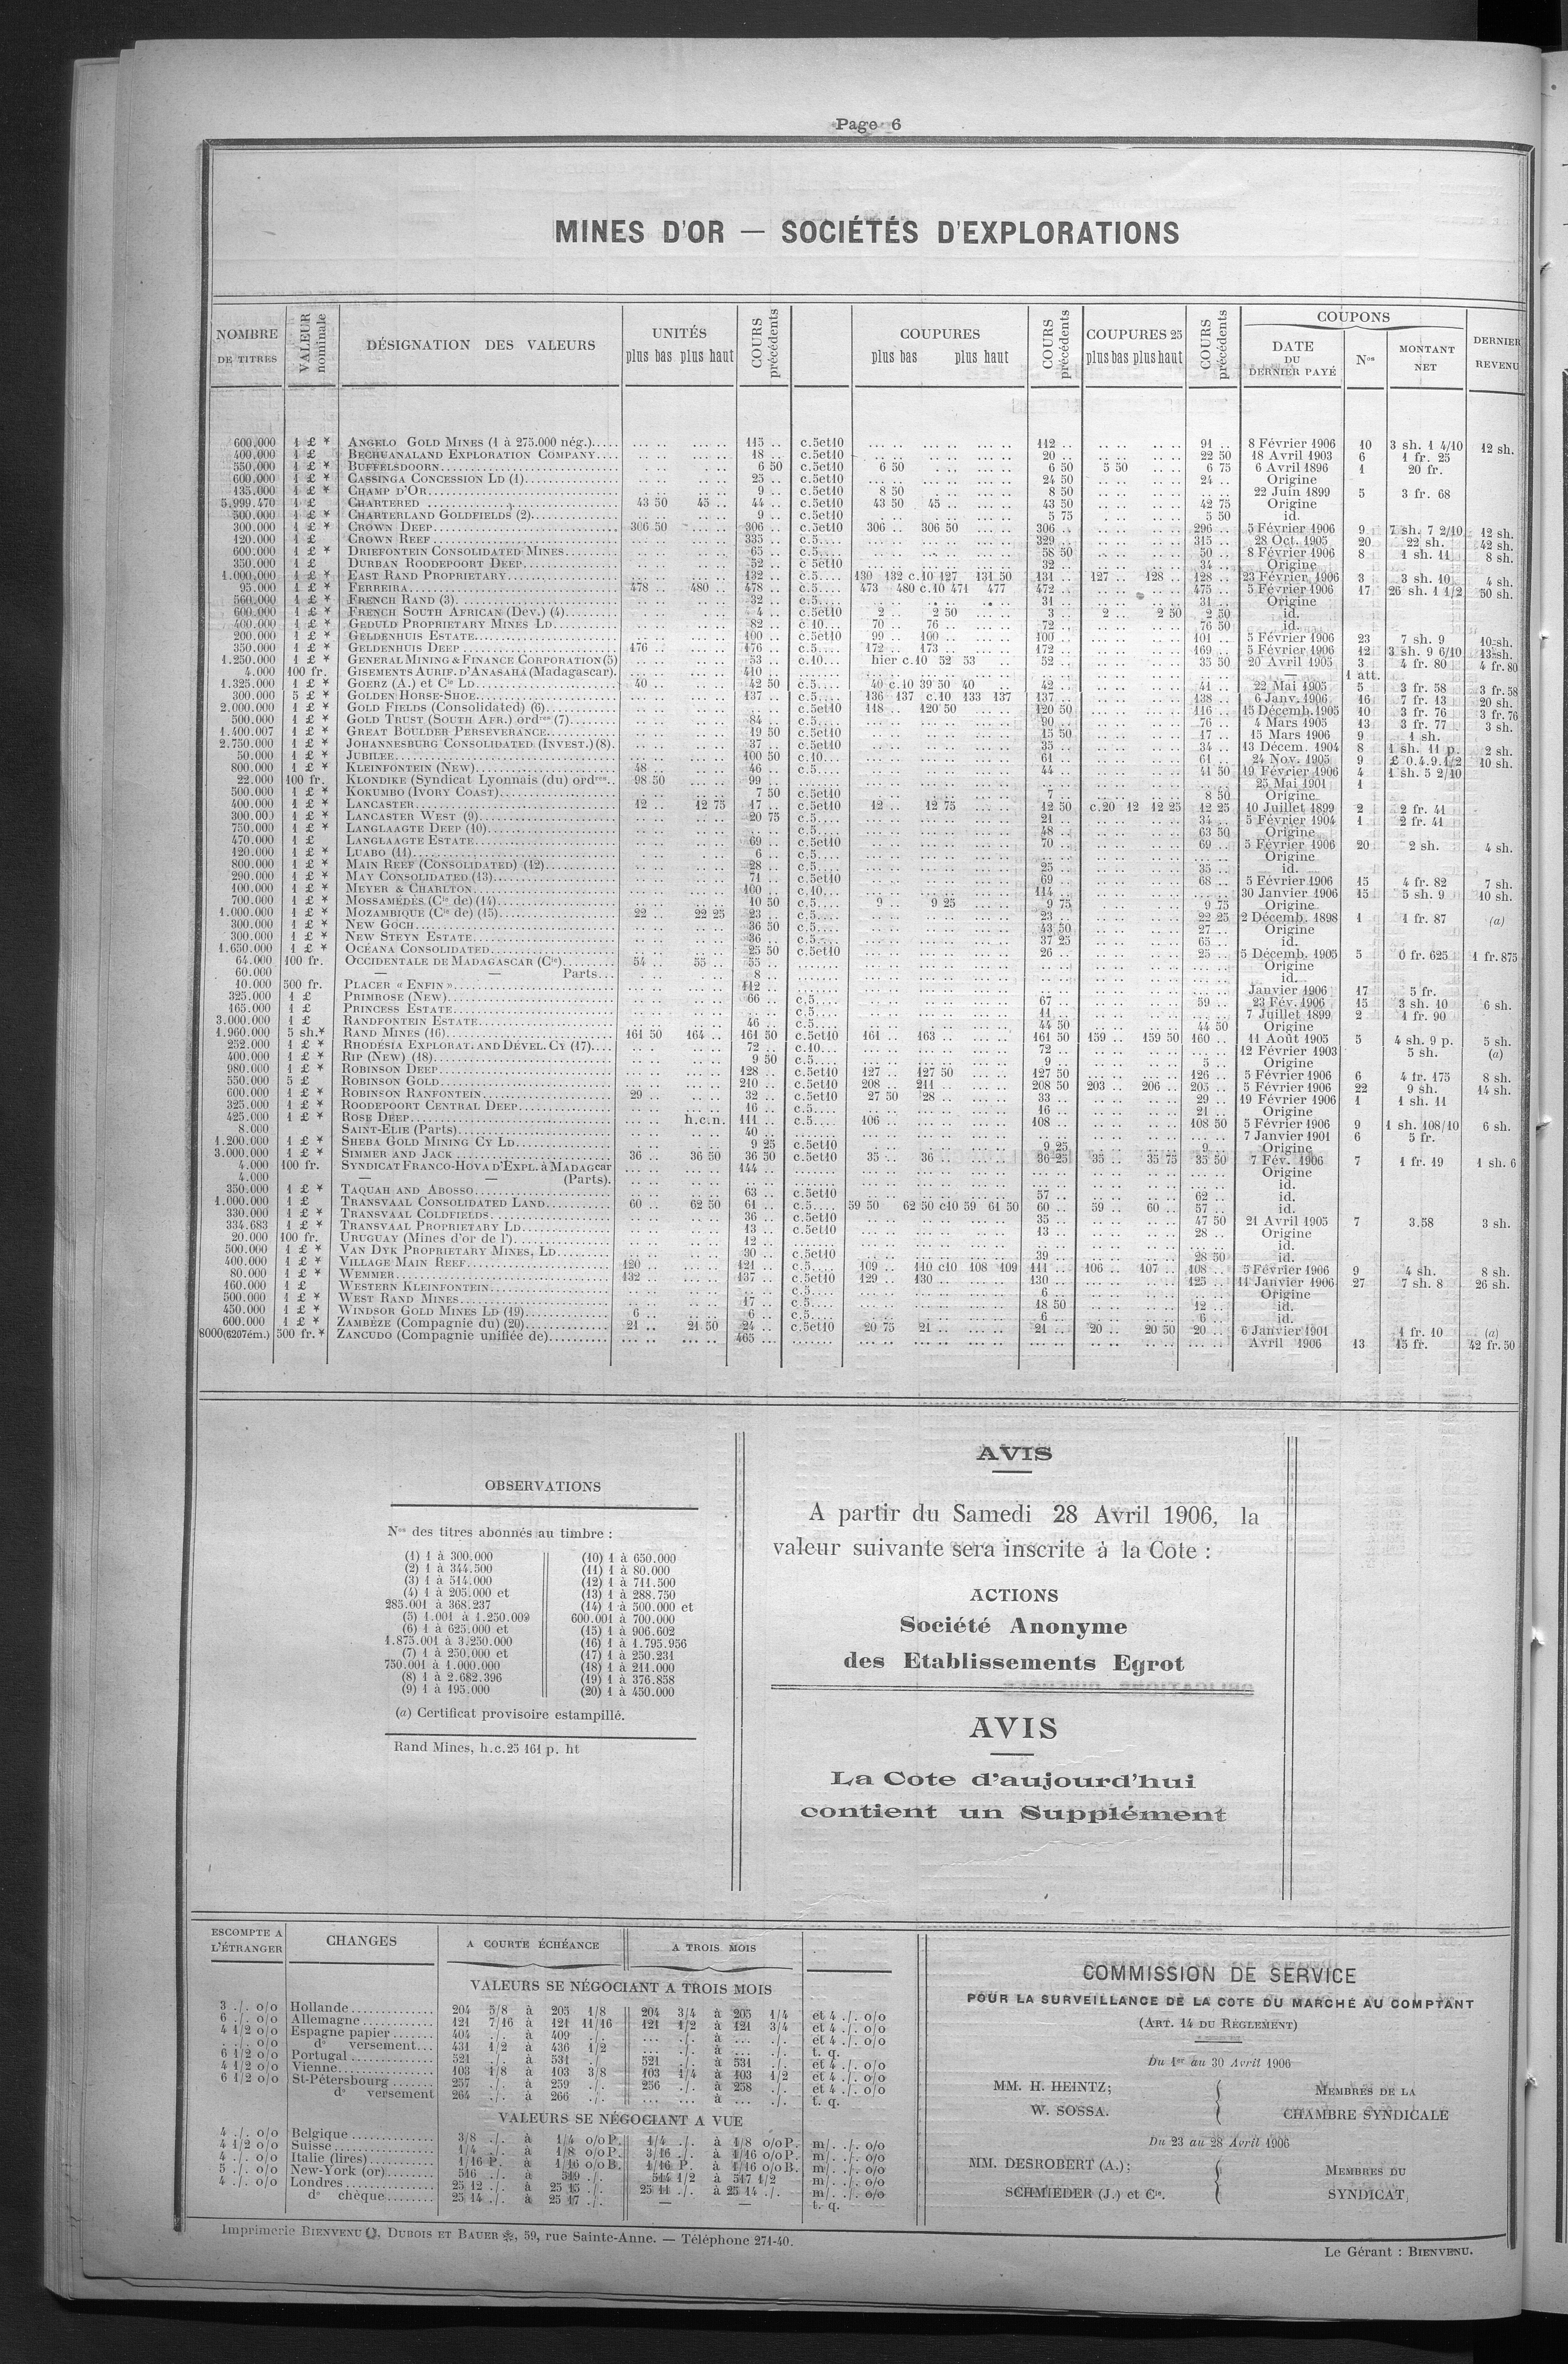 Page 6
MINES D'OR — SOCIÉTÉS D'EXPLORATIONS
NOMBRE DE TITRES | VALEUR nominale | DÉSIGNATION DES VALEURS | UNITÉS plus bas plus haut | COURS précédents | COUPURES plus bas plus haut | COURS précédents | COUPURES 25 plus bas plus haut | COURS précédents | COUPONS DATE DU DERNIER PAYÉ | Nos | MONTANT NET | DERNIER REVENU
600.000 1 £ * ANGELO GOLD MINES (1 à 275.000 nég.)..... 115 .. c.5et10 112 .. 91 .. 8 Février 1906 10 3 sh. 1 4/10 12 sh.
400.000 1 £ BECHUANALAND EXPLORATION COMPANY.... 18 .. c.5et10 20 .. 22 50 18 Avril 1903 6 1 fr. 25
550.000 1 £ * BUFFELSDOORN..... 6 50 c.5et10 6 50 6 50 5 50 6 75 6 Avril 1896 1 20 fr.
600.000 1 £ * CASSINGA CONCESSION LD (1)..... 25 .. c.5et10 24 50 24 .. Origine
135.000 1 £ * CHAMP D'OR..... 9 .. c.5et10 8 50 8 50 22 Juin 1899 5 3 fr. 68
5.999.470 1 £ * CHARTERED ..... 43 50 45 .. 44 .. c.5et10 43 50 45 .. 43 50 42 75 Origine
500.000 1 £ * CHARTERLAND GOLDFIELDS (2)..... 9 .. c.5et10 5 75 5 50 id.
300.000 1 £ * CROWN DEEP..... 306 50 306 .. c.5et10 306 .. 306 50 306 .. 296 .. 5 Février 1906 9 7 sh. 7 2/10 12 sh.
120.000 1 £ CROWN REEF..... 335 .. c.5.... 329 .. 315 .. 28 Oct. 1905 20 22 sh. 42 sh.
600.000 1 £ * DRIEFONTEIN CONSOLIDATED MINES..... 65 .. c.5.... 58 50 50 .. 8 Février 1906 8 1 sh. 11 8 sh.
350.000 1 £ DURBAN ROODEPOORT DEEP..... 52 .. c 5et10 32 .. 34 .. Origine
1.000.000 1 £ * EAST RAND PROPRIETARY..... 132 .. c.5.... 130 132 c.10 127 131 50 131 .. 127 .. 128 .. 128 .. 23 Février 1906 3 3 sh. 10 4 sh.
95.000 1 £ * FERREIRA..... 478 .. 480 .. 478 .. c.5.... 473 480 c.10 471 477 472 .. 475 .. 5 Février 1906 17 26 sh. 1 1/2 50 sh.
560.000 1 £ * FRENCH RAND (3)..... 32 .. c.5.... 31 .. 31 .. Origine
600.000 1 £ * FRENCH SOUTH AFRICAN (Dev.) (4)..... 4 .. c.5et10 2 .. 2 50 3 .. 2 .. 2 50 2 50 id.
400.000 1 £ * GEDULD PROPRIETARY MINES LD..... 82 .. c.10... 70 .. 76 .. 72 .. 76 50 id.
200.000 1 £ * GELDENHUIS ESTATE..... 100 .. c.5et10 99 .. 100 .. 100 .. 101 .. 5 Février 1906 23 7 sh. 9 10 sh.
350.000 1 £ * GELDENHUIS DEEP ..... 176 .. 176 .. c.5.... 172 .. 173 .. 172 .. 169 .. 5 Février 1906 12 3 sh. 9 6/10 13 sh.
1.250.000 1 £ * GENERAL MINING & FINANCE CORPORATION (5) 53 .. c.10... hier c.10 52 53 52 .. 35 50 20 Avril 1905 3 4 fr. 80 4 fr. 80
4.000 100 fr. GISEMENTS AURIF. D'ANASAHA (Madagascar). 410 .. — 1 att.
1.325.000 1 £ * GOERZ (A.) et Cie LD..... 40 .. 42 50 c.5.... 40 c.10 39 50 40 42 .. 41 .. 22 Mai 1905 5 3 fr. 58 3 fr. 58
300.000 5 £ * GOLDEN HORSE-SHOE..... 137 .. c.5.... 136 137 c.10 133 137 137 .. 138 .. 6 Janv. 1906 16 7 fr. 13 20 sh.
2.000.000 1 £ * GOLD FIELDS (Consolidated) (6)..... c.5et10 118 .. 120 50 120 50 116 .. 15 Décemb. 1905 10 3 fr. 76 3 fr. 76
500.000 1 £ * GOLD TRUST (SOUTH AFR.) ordres (7)..... 84 .. c.5.... 90 .. 76 .. 4 Mars 1905 13 3 fr. 77 3 sh.
1.400.007 1 £ * GREAT BOULDER PERSEVERANCE..... 19 50 c.5et10 15 50 17 .. 15 Mars 1906 9 1 sh.
2.750.000 1 £ * JOHANNESBURG CONSOLIDATED (INVEST.) (8). 37 .. c.5et10 35 .. 34 .. 13 Décem. 1904 8 1 sh. 11 p. 2 sh.
50.000 1 £ * JUBILEE..... 100 50 c.10... 61 .. 61 .. 24 Nov. 1905 9 £ 0.4.9.1/2 10 sh.
800.000 1 £ * KLEINFONTEIN (NEW)..... 48 .. 46 .. c.5.... 44 .. 41 50 19 Février 1906 4 1 sh. 5 2/10
22.000 100 fr. KLONDIKE (Syndicat Lyonnais (du) ordres.. 98 50 99 .. 25 Mai 1901 1
500.000 1 £ * KOKUMBO (IVORY COAST)..... 7 50 c.5et10 7 .. 8 50 Origine
400.000 1 £ * LANCASTER..... 12 .. 12 75 17 .. c.5et10 12 .. 12 75 12 50 c.20 12 12 25 12 25 10 Juillet 1899 2 2 fr. 41
300.000 1 £ * LANCASTER WEST (9)..... 20 75 c.5.... 21 .. 34 .. 5 Février 1904 1 2 fr. 41
750.000 1 £ * LANGLAAGTE DEEP (10)..... c.5.... 48 .. 63 50 Origine
470.000 1 £ LANGLAAGTE ESTATE..... 69 .. c.5et10 70 .. 69 .. 5 Février 1906 20 2 sh. 4 sh.
120.000 1 £ * LUABO (11)..... 6 .. c.5.... Origine
800.000 1 £ * MAIN REEF (CONSOLIDATED) (12)..... 28 .. c.5.... 25 .. 35 .. id.
290.000 1 £ * MAY CONSOLIDATED (13)..... 71 .. c.5et10 69 .. 68 .. 5 Février 1906 15 4 fr. 82 7 sh.
100.000 1 £ * MEYER & CHARLTON..... 100 .. c.10... 114 .. 30 Janvier 1906 15 5 sh. 9 10 sh.
700.000 1 £ * MOSSAMÉDÈS (Cie de) (14)..... 10 50 c.5.... 9 .. 9 25 9 75 9 75 Origine
1.000.000 1 £ * MOZAMBIQUE (Cie de) (15)..... 22 .. 22 25 23 .. c.5.... 23 .. 22 25 2 Décemb. 1898 1 1 fr. 87 (a)
300.000 1 £ * NEW GOCH..... 36 50 c.5.... 43 50 27 .. Origine
300.000 1 £ * NEW STEYN ESTATE..... 36 .. c.5.... 37 25 65 .. id.
1.650.000 1 £ * OCÉANA CONSOLIDATED..... 25 50 c.5et10 26 .. 25 .. 5 Décemb. 1905 5 0 fr. 625 1 fr. 875
64.000 100 fr. OCCIDENTALE DE MADAGASCAR (Cie)..... 54 .. 55 .. 55 .. Origine
60.000 — — Parts... 8 .. id.
10.000 500 fr. PLACER « ENFIN »..... 112 .. Janvier 1906 17 5 fr.
325.000 1 £ PRIMROSE (NEW)..... 66 .. c.5.... 67 .. 59 .. 23 Fév. 1906 15 3 sh. 10 6 sh.
165.000 1 £ PRINCESS ESTATE..... c.5.... 11 .. 7 Juillet 1899 2 1 fr. 90
3.000.000 1 £ RANDFONTEIN ESTATE..... 46 .. c.5.... 44 50 44 50 Origine
1.960.000 5 sh.* RAND MINES (16)..... 161 50 164 .. 161 50 c.5et10 161 .. 163 .. 161 50 159 .. 159 50 160 .. 11 Août 1905 5 4 sh. 9 p. 5 sh.
252.000 1 £ * RHODÉSIA EXPLORAT. AND DÉVEL. CY (17).... 72 .. c.10... 72 .. 12 Février 1903 5 sh. (a)
400.000 1 £ * RIP (NEW) (18)..... 9 50 c.5.... 9 .. 5 .. Origine
980.000 1 £ * ROBINSON DEEP..... 128 .. c.5et10 127 .. 127 50 127 50 126 .. 5 Février 1906 6 4 fr. 175 8 sh.
550.000 5 £ ROBINSON GOLD..... 210 .. c.5et10 208 .. 211 .. 208 50 203 .. 206 .. 205 .. 5 Février 1906 22 9 sh. 14 sh.
600.000 1 £ * ROBINSON RANFONTEIN..... 29 .. 32 .. c.5et10 27 50 28 .. 33 .. 29 .. 19 Février 1906 1 1 sh. 11
325.000 1 £ * ROODEPOORT CENTRAL DEEP..... 16 .. c.5.... 16 .. 21 .. Origine
425.000 1 £ * ROSE DEEP..... h.c.n. 111 .. c.5.... 106 .. 108 .. 108 50 5 Février 1906 9 1 sh. 108/10 6 sh.
8.000 SAINT-ELIE (Parts)..... 40 .. 7 Janvier 1901 6 5 fr.
1.200.000 1 £ * SHEBA GOLD MINING CY LD..... 9 25 c.5et10 9 25 9 .. Origine
3.000.000 1 £ * SIMMER AND JACK ..... 36 .. 36 50 36 50 c.5et10 35 .. 36 .. 36 25 35 .. 35 75 35 50 7 Fév. 1906 7 1 fr. 19 1 sh. 6
4.000 100 fr. SYNDICAT FRANCO-HOVA D'EXPL. à MADAGcar 144 .. Origine
4.000 — — (Parts). id.
350.000 1 £ * TAQUAH AND ABOSSO..... 63 .. c.5et10 57 .. 62 .. id.
1.000.000 1 £ TRANSVAAL CONSOLIDATED LAND..... 60 .. 62 50 61 .. c.5.... 59 50 62 50 c10 59 61 50 60 .. 59 .. 60 .. 57 .. id.
330.000 1 £ * TRANSVAAL COLDFIELDS..... 36 .. c.5et10 35 .. 47 50 21 Avril 1905 7 3.58 3 sh.
334.683 1 £ * TRANSVAAL PROPRIETARY LD..... 13 .. c.5et10 13 .. 28 .. Origine
20.000 100 fr. URUGUAY (Mines d'or de l')..... 12 .. id.
500.000 1 £ * VAN DYK PROPRIETARY MINES, LD..... 30 .. c.5et10 39 .. 28 50 id.
400.000 1 £ * VILLAGE MAIN REEF..... 120 .. 121 .. c.5.... 109 .. 110 c10 108 109 111 .. 106 .. 107 .. 108 .. 5 Février 1906 9 4 sh. 8 sh.
80.000 1 £ * WEMMER..... 132 .. 137 .. c.5et10 129 .. 130 .. 130 .. 125 .. 11 Janvier 1906 27 7 sh. 8 26 sh.
160.000 1 £ WESTERN KLEINFONTEIN..... c.5.... 6 .. Origine
500.000 1 £ * WEST RAND MINES..... 17 .. c.5.... 18 50 12 .. id.
450.000 1 £ * WINDSOR GOLD MINES LD (19)..... 6 .. 6 .. c.5.... 6 .. 6 .. id.
600.000 1 £ * ZAMBÈZE (Compagnie du) (20)..... 21 .. 21 50 24 .. c.5et10 20 75 21 .. 21 .. 20 .. 20 50 20 .. 6 Janvier 1901 1 fr. 10 (a)
8000(6207ém.) 500 fr.* ZANCUDO (Compagnie unifiée de)..... 465 ... Avril 1906 13 15 fr. 42 fr. 50
OBSERVATIONS
Nos des titres abonnés au timbre :
(1) 1 à 300.000
(2) 1 à 344.500
(3) 1 à 514.000
(4) 1 à 205.000 et
285.001 à 368.237
(5) 1.001 à 1.250.009
(6) 1 à 625.000 et
1.875.001 à 3.250.000
(7) 1 à 250.000 et
750.001 à 1.000.000
(8) 1 à 2.682.396
(9) 1 à 195.000
(10) 1 à 650.000
(11) 1 à 80.000
(12) 1 à 711.500
(13) 1 à 288.750
(14) 1 à 500.000 et
600.001 à 700.000
(15) 1 à 906.602
(16) 1 à 1.795.956
(17) 1 à 250.231
(18) 1 à 211.000
(19) 1 à 376.858
(20) 1 à 450.000
(a) Certificat provisoire estampillé.
Rand Mines, h.c.25 161 p. ht
AVIS
A partir du Samedi 28 Avril 1906, la
valeur suivante sera inscrite à la Cote :
ACTIONS
Société Anonyme
des Etablissements Egrot
AVIS
La Cote d'aujourd'hui
contient un Supplément
ESCOMPTE A L'ÉTRANGER | CHANGES | A COURTE ÉCHÉANCE | A TROIS MOIS
VALEURS SE NÉGOCIANT A TROIS MOIS
3 ./. o/o Hollande..... 204 5/8 à 205 1/8 204 3/4 à 205 1/4 et 4 ./. o/o
6 ./. o/o Allemagne..... 121 7/16 à 121 11/16 121 1/2 à 121 3/4 et 4 ./. o/o
4 1/2 o/o Espagne papier..... 404 ./. à 409 ./. ... ./. à ... ./. et 4 ./. o/o
. ./. o/o do versement... 431 1/2 à 436 1/2 ... ./. à ... ./. t. q.
6 1/2 o/o Portugal..... 521 ./. à 531 ./. 521 ./. à 531 ./. et 4 ./. o/o
4 1/2 o/o Vienne..... 103 1/8 à 103 3/8 103 1/4 à 103 1/2 et 4 ./. o/o
6 1/2 o/o St-Pétersbourg..... 257 ./. à 259 ./. 256 ./. à 258 ./. et 4 ./. o/o
do versement 264 ./. à 266 ./. ... à ... ./. t. q.
VALEURS SE NÉGOCIANT A VUE
4 ./. o/o Belgique..... 3/8 ./. à 1/4 o/o P. 1/4 ./. à 1/8 o/o P. m/. ./. o/o
4 1/2 o/o Suisse..... 1/4 ./. à 1/8 o/o P. 3/16 ./. à 1/16 o/o P. m/. ./. o/o
4 ./. o/o Italie (lires)..... 1/16 P. à 1/16 o/o B. 1/16 P. à 1/16 o/o B. m/. ./. o/o
5 ./. o/o New-York (or)..... 516 ./. à 519 ./. 514 1/2 à 517 1/2 m/. ./. o/o
4 ./. o/o Londres..... 25 12 ./. à 25 15 ./. 25 11 ./. à 25 14 ./. m/. ./. o/o
do chèque..... 25 14 ./. à 25 17 ./. — — t. q.
COMMISSION DE SERVICE
POUR LA SURVEILLANCE DE LA COTE DU MARCHÉ AU COMPTANT
(ART. 14 DU RÈGLEMENT)
Du 1er au 30 Avril 1906
MM. H. HEINTZ;
W. SOSSA.
MEMBRES DE LA
CHAMBRE SYNDICALE
Du 23 au 28 Avril 1906
MM. DESROBERT (A.);
SCHMIEDER (J.) et Cie.
MEMBRES DU
SYNDICAT
Imprimerie BIENVENU, DUBOIS ET BAUER, 59, rue Sainte-Anne. — Téléphone 271-40.
Le Gérant : BIENVENU.